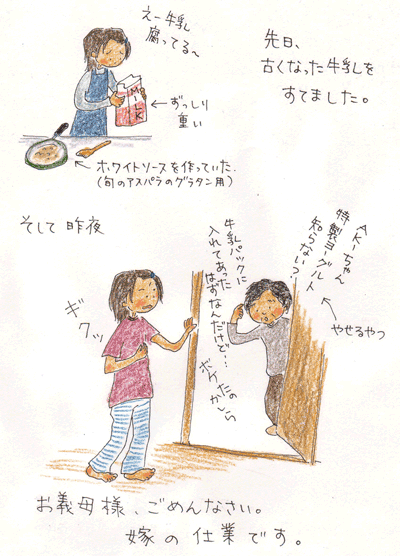 えー牛乳
腐ってる〜
先日、
古くなった牛乳を
すてました。
MILK
ずっしり
重い
ホワイトソースを作っていた.
(旬のアスパラのグラタン用)
そして昨夜
AKIちゃん
特製ヨーグルト
知らない?
やせるやつ
牛乳パックに
入れてあった
はずなんだけど…
ボケたの
かしら
ギクッ
お義母様、ごめんなさい。
嫁の仕業です。